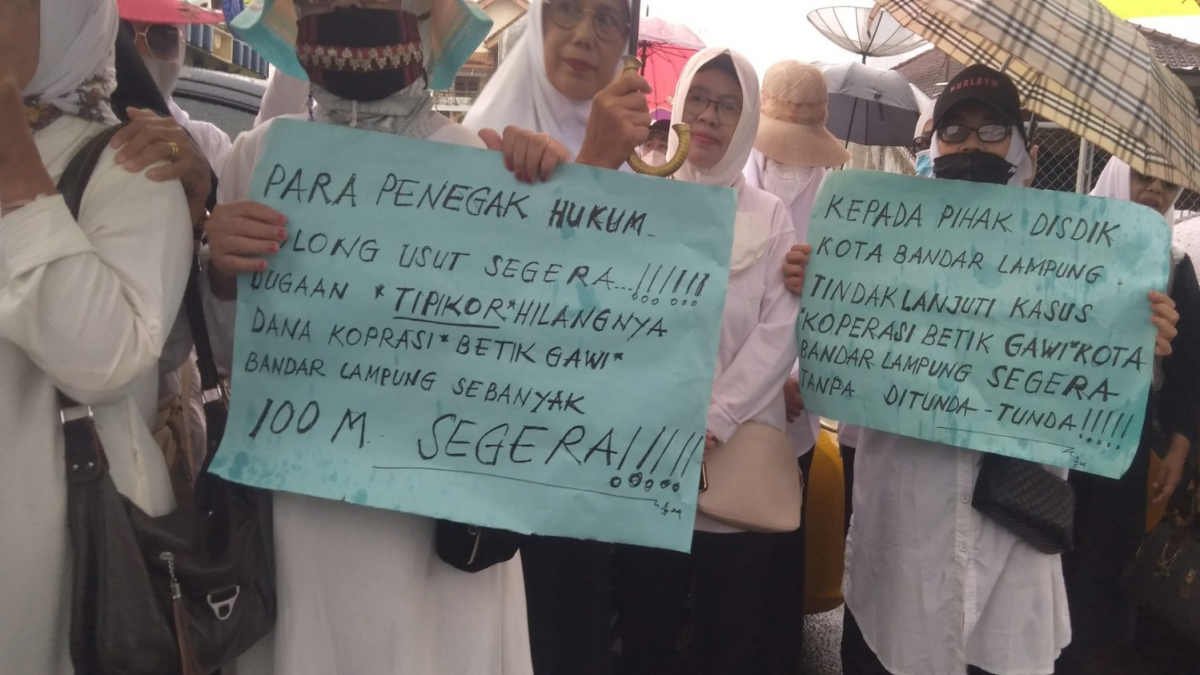 PARA PENEGAK HUKUM
LONG USUT SEGERA...!!!!!!
DUGAAN *TIPIKOR* HILANGNYA
DANA KOPRASI *BETIK GAWI*
BANDAR LAMPUNG SEBANYAK
100 M. SEGERA!!!!!
KEPADA PIHAK DISDIK
KOTA BANDAR LAMPUNG.
TINDAK LANJUTI KASUS
*KOPERASI BETIK GAWI* KOTA
BANDAR LAMPUNG SEGERA
TANPA DITUNDA-TUNDA!!!!!